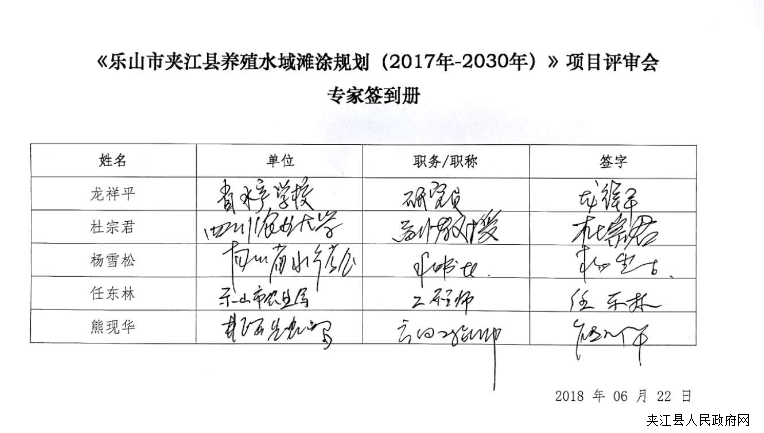 《乐山市夹江县养殖水域滩涂规划（2017年-2030年）》项目评审会
专家签到册
姓名 单位 职务/职称 签字
龙祥平 省水产学校 研究员 龙祥平
杜宗君 四川农业大学 副教授 杜宗君
杨雪松
任东林 乐山市农业局 工程师 任东林
熊现华
2018 年 06 月 22 日
夹江县人民政府网